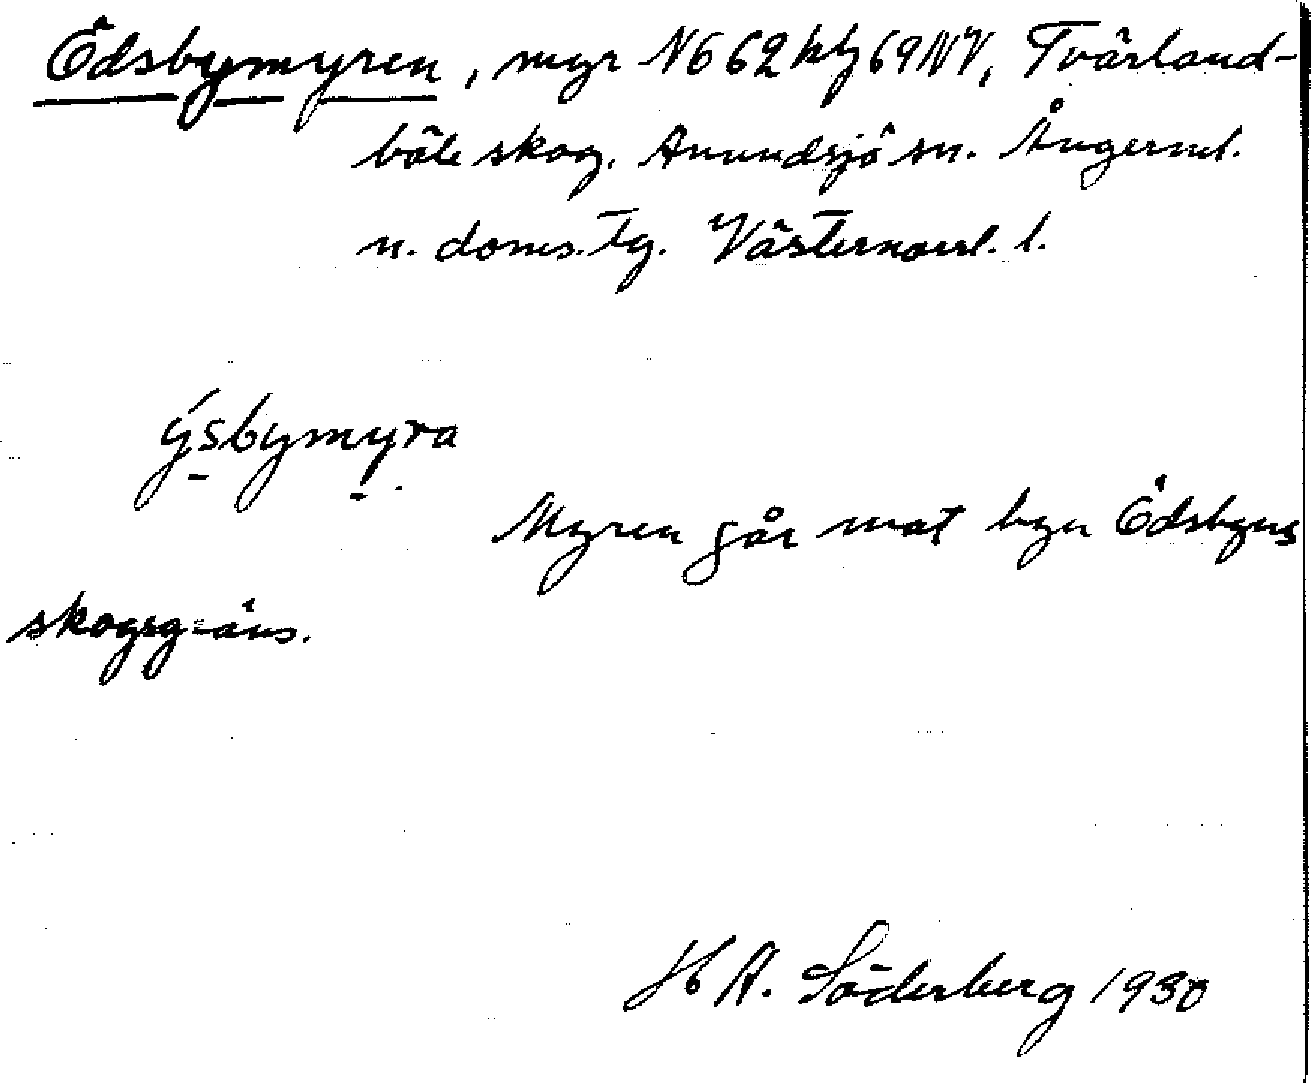 Ödsbymyren, myr N662kf69NV, Tvärland-
böle skog. Anundsjö sn. Ångerml.
n. doms.tg. Västernorrl. l.
ýsbymyra
Myren går mot byn Ödsbyns
skogsgräns.
H A. Söderberg 1930